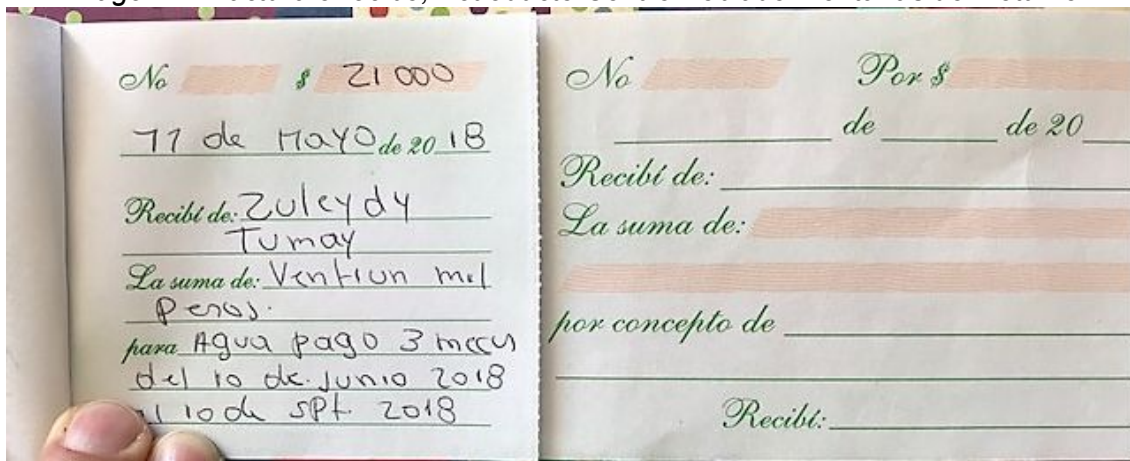 No $ 21 000
11 de MAYO de 20 18
Recibí de: Zuleydy
Tumay
La suma de: Ventiun mil
Pesos.
para Agua pago 3 meses
del 10 de Junio 2018
al 10 de spt. 2018
No Por $
de de 20
Recibí de:
La suma de:
por concepto de
Recibí: